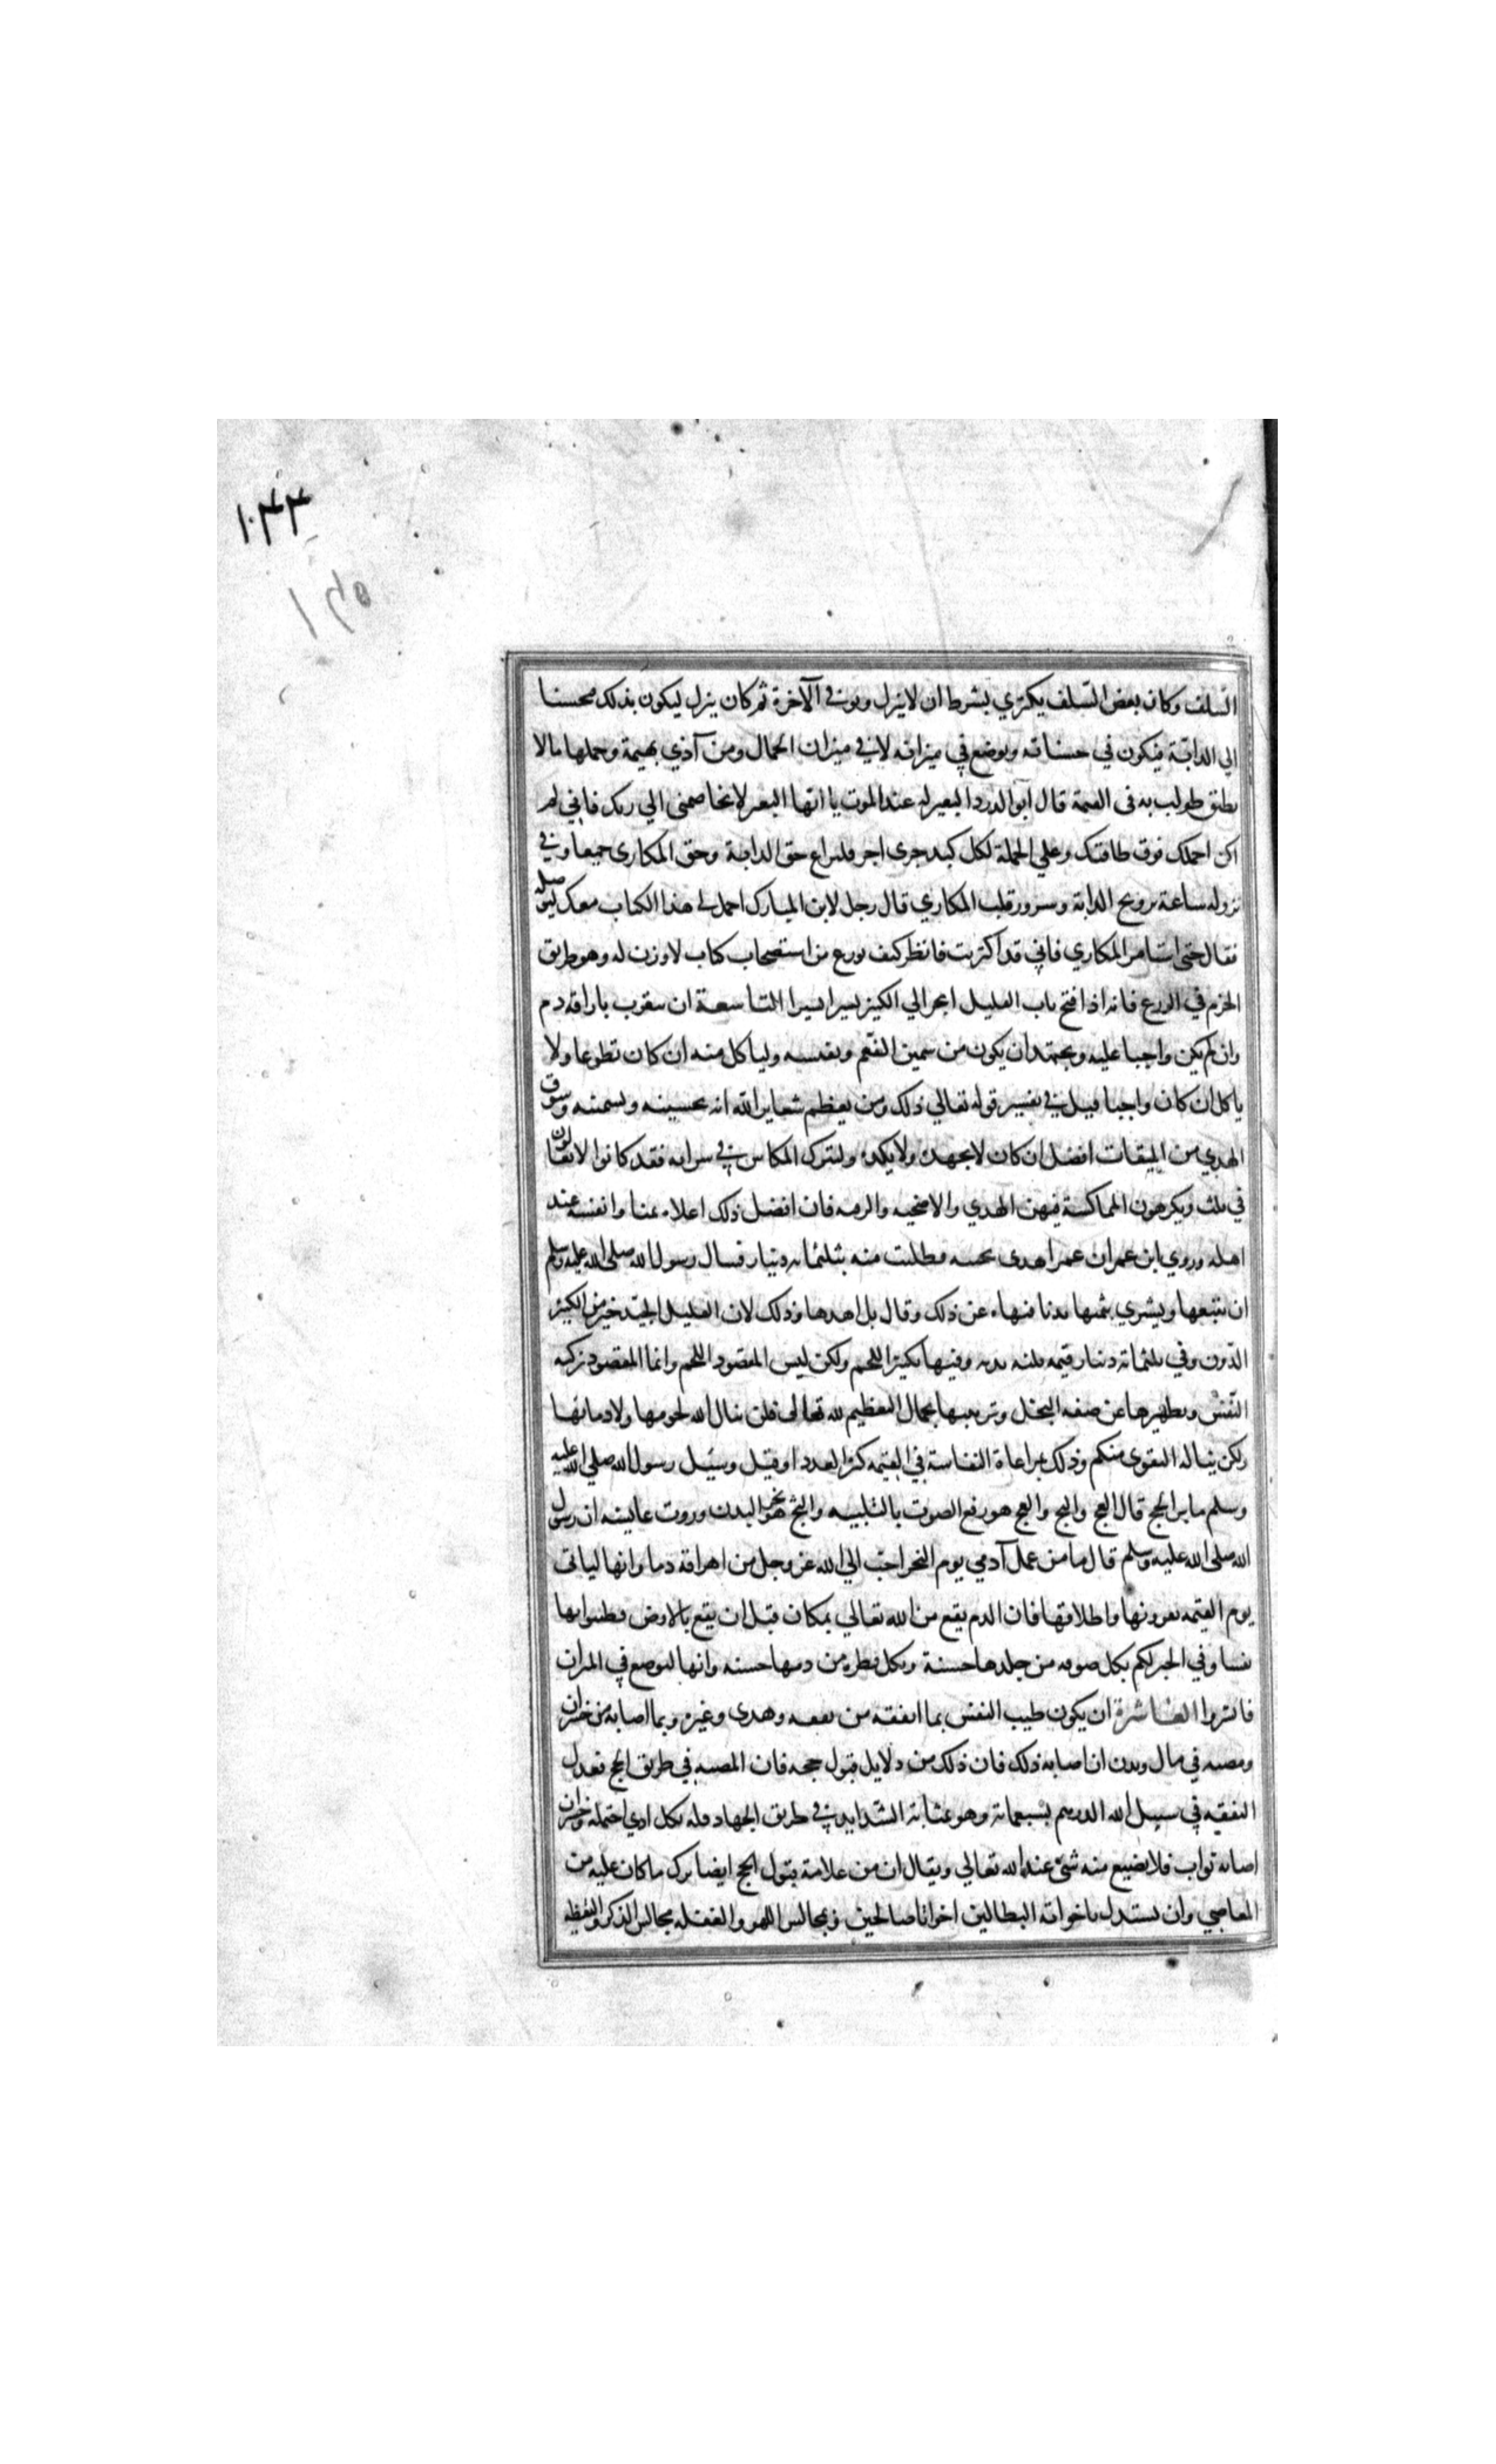 ١٠٣٣
١٣٥
السلف وكان بعض السلف يكتري بشرط ان لا ينزل ويوفي الآخرة ثم كان ينزل ليكون بذلك محسنا
الي الدابة فيكون في حسناته ويوضع في ميزانه لا في ميزان الجمال ومن آذي بهيمة وحملها ما لا
يطيق طولب به في القيمة قال ابو الدردا لبعير له عند الموت يا ايها البعير لا تخاصمني الي ربك فاني لم
اكن احملك فوق طاقتك وعلي الجملة لكل كبد حري اجر فليراع حق الدابة وحق المكاري جميعا وفي
نزوله ساعة ترويح الدابة وسرور قلب المكاري قال رجل لابن المبارك احمل لي هذا الكتاب معك لتوصله
فقال حتي استامر المكاري فاني قد اكتريت فانظر كيف تورع من استصحاب كتاب لا وزن له وهو طريق
الحزم في الورع فانه اذا فتح باب القليل انجر الي الكثير يسيرا يسيرا التاسعة ان يتقرب باراقة دم
وان لم يكن واجبا عليه ويجتهد ان يكون من سمين النعم ونفيسه ولياكل منه ان كان تطوعا ولا
ياكل ان كان واجبا قيل في تفسير قوله تعالي ذلك ومن يعظم شعاير الله انه تحسينه وتسمينه وسوق
الهدي من الميقات افضل ان كان لا يجهده ولا يكده وليترك المكاس في شرايه فقد كانوا لا يغالون
في ثلث ويكرهون المماكسة فيهن الهدي والاضحيه والرقبه فان افضل ذلك اعلاه ثمنا وانفسه عند
اهله وروي ابن عمر ان عمر اهدي نجيبة فطلبت منه بثلثمائه دينار فسال رسول الله صلى الله عليه وسلم
ان يبيعها ويشري بثمنها بدنا فنهاه عن ذلك وقال بل اهدها وذلك لان القليل الجيد خير من الكثير
الدون وفي ثلثمائة دينار قيمه ثلثين بدنه وفيها تكثير اللحم ولكن ليس المقصود اللحم وانما المقصود تزكيه
النفس وتطهيرها عن صفه البخل وتزيينها بجمال التعظيم لله تعالى فلن ينال الله لحومها ولا دماؤها
ولكن يناله التقوى منكم وذلك بمراعاة النفاسة في القيمه كثر العدد او قل وسئيل رسول الله صلى الله عليه
وسلم ما بر الحج قال العج والثج والعج هو رفع الصوت بالتلبيه والثج هو نحر البدن وروت عايشه ان رسول
الله صلى الله عليه وسلم قال ما من عمل آدمي يوم النحر احب الي الله عز وجل من اهراقه دما وانها لياتي
يوم القيمه بقرونها واظلافها فان الدم يقع من الله تعالي بمكان قبل ان يقع بالارض فطيبوا بها
نفسا وفي الخبر لكم بكل صوفه من جلدها حسنة وبكل قطره من دمها حسنه وانها لتوضع في الميزان
فابشروا العاشرة ان يكون طيب النفس بما انفقه من نفقه وهدي وغيره وبما اصابه من خسران
ومصيبه في مال وبدن ان اصابه ذلك فان ذلك من دلايل قبول حجه فان المصيبه في طريق الحج تعدل
النفقه في سبيل الله الدرهم بسبعمائه وهو بمثابة الشدايد في طريق الجهاد فله بكل اذي احتمله وخسران
اصابه ثواب فلا يضيع منه شئ عند الله تعالي ويقال ان من علامة قبول الحج ايضا ترك ما كان عليه من
المعاصي وان يستبدل باخوانه البطالين اخوانا صالحين وبمجالس اللهو والغفله مجالس الذكر واليقظه